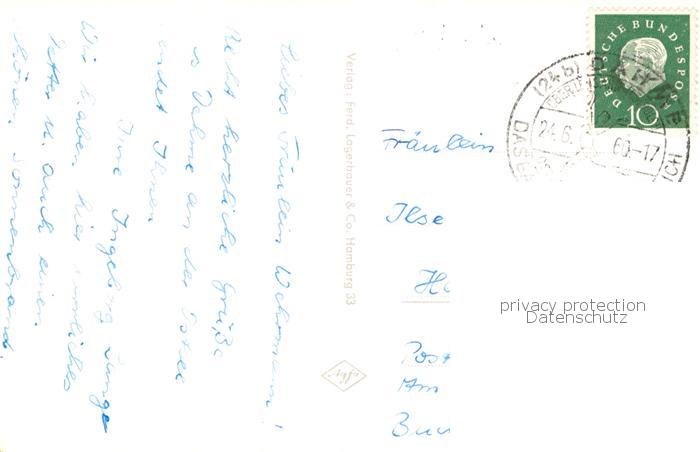 Liebes Fräulein Wehrmann!
Recht herzliche Grüße
s Dahme an der Ostsee
endet Ihnen
Ihre Ingeborg Lange
Wir haben hier herrliches
etter u. auch einen
Sonnenbrand.
Verlag: Ferd. Lagerbauer & Co. Hamburg 33
DEUTSCHE BUNDESPOST
10
(24b) DAHME
24.6.60.-17
DAS
Fräulein
Ilse
He
Post
Am
privacy protection
Datenschutz